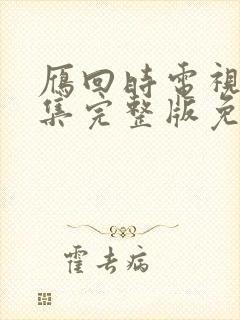 雁回時電視
集完整版免
霍去病